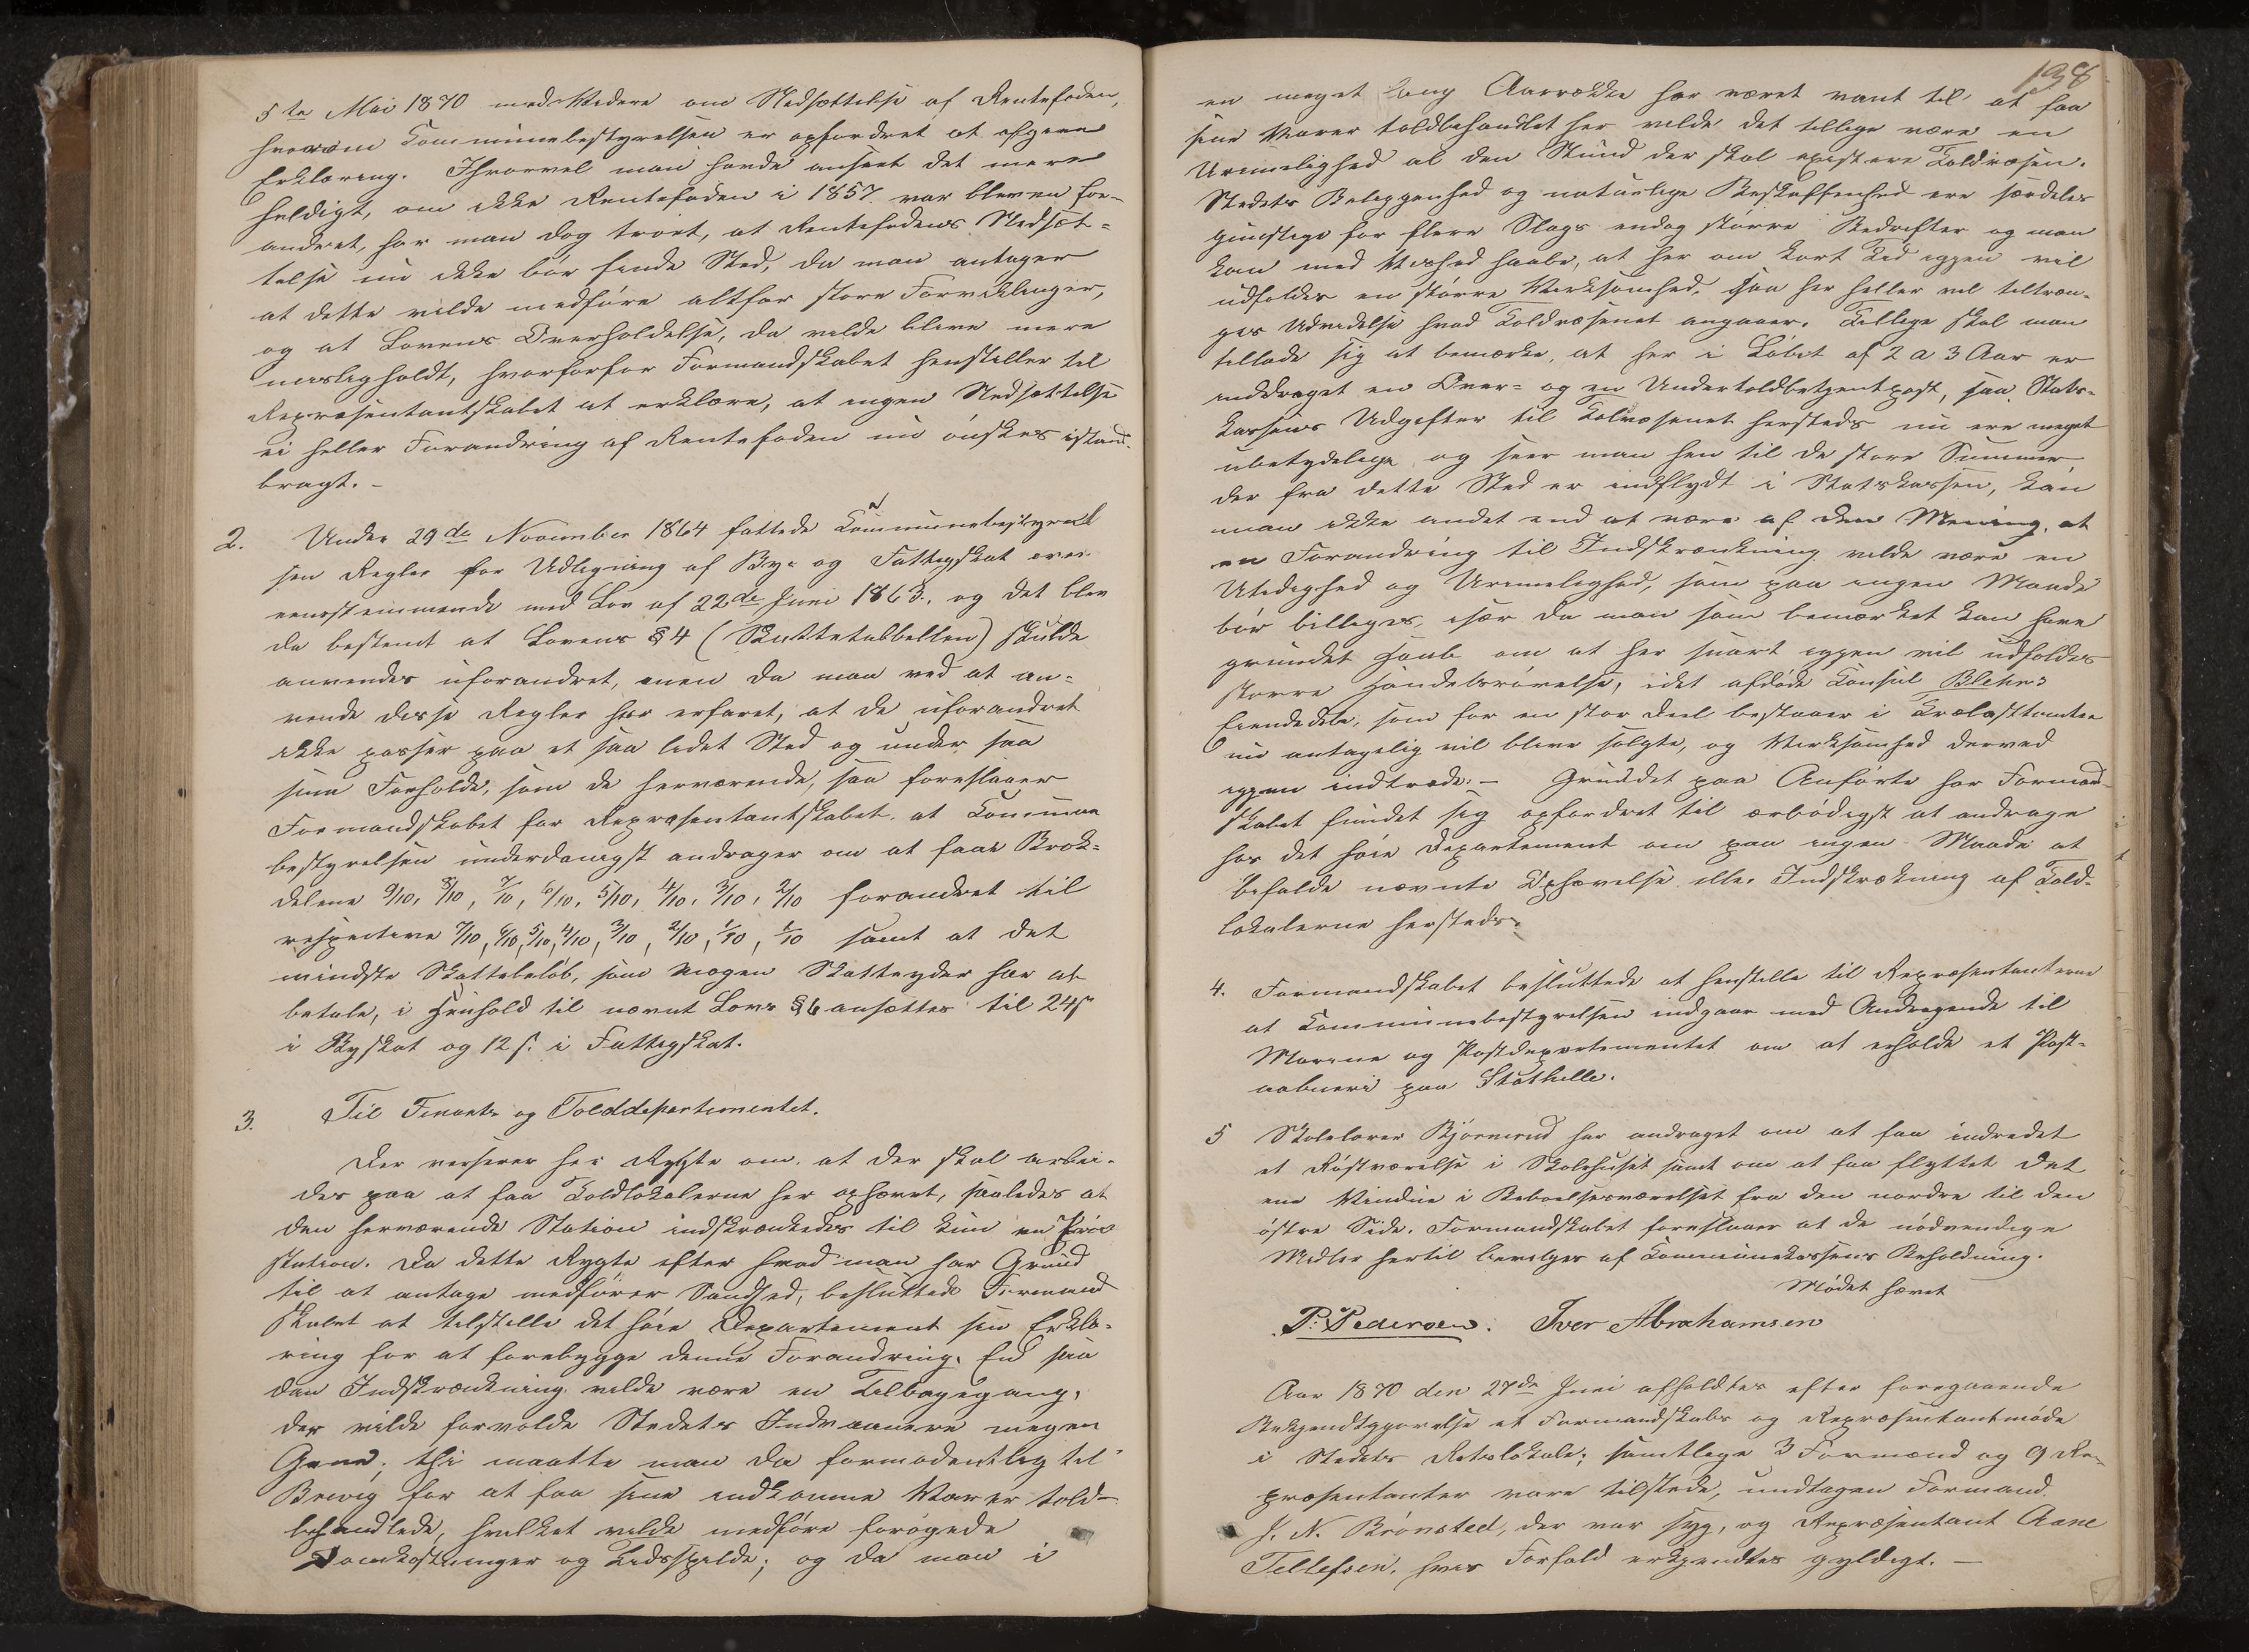 5te Mai 1870 med Videre om Nedsættelse af Rentefoden,
hvorom Communebestyrelsen er opfordret at afgive
Erklæring. Ihvorvel man havde anseet det mere
heldigt, om ikke Rentefoden i 1857 var bleven for-
andret, har man dog troet, at Rentefodens Nedsæt-
telse nu ikke bör finde Sted, da man antager
at dette vilde medföre altfor store Forviklinger,
og at Lovens Overholdelse, da vilde blive mere
ueslig holdt, hvorforfor Formandskabet henstiller til
Repræsentantskabet at erklære, at ingen Nedsættelse
ei heller Forandring af Rentefoden nu önskes istand-
bragt. –
2. Under 29de November 1864 fattede Communebestyrel
sen Regler for Udligning af By- og Fattigskat over
eenstemmende med Lov af 22de Juni 1863., og det blev
da bestemt at Lovens § 4 (Skattetabellen) skulde
anvendes uforandret, men da man ved at an-
vende disse Regler har erfaret, at de uforandret
ikke passer paa et saa lidet Sted og under saa
smaa Forholde, som de herværende, saa foreslaaer
Formandskabet for Repræsentantskabet, at Commune
bestyrelsen underdanigst andrager om at faae Brök-
delene 9/10, 8/10, 7/10, 6/10, 5/10, 4/10, 3/10, 2/10 forandret til
respective 7/10, 6/10, 5/10, 4/10, 3/10, 2/10, 1/10, 1/10 samt at det
mindste Skattebelöb, som Nogen Skatteyder har at
betale, i Henhold til nævnt Lovs § 6 ansættes til 24 s
i Byskat og 12 s. i Fattigskat.
3. Til Finants og Tolddepartementet.
Der verserer her Rygte om, at der skal arbei-
des paa at faa Toldlokalerne her ophævet, saaledes at
den herværende Station indskrænkedes til kun en
station. Da dette Rygte efter hvad man har Grund
til at antage medförer Sandhed, besluttede Formand
skabet at tilstille det höie Departement sin Erklæ-
ring for at forebygge denne Forandring. En saa
dan Indskrænkning vilde være en Tilbagegang,
der vilde forvolde Stedets Indvaanere megen
Gene; thi maatte man da formodentlig til
Brevig for at faa sine indkomne Varer told-
behandlede, hvilket vilde medföre forögede
Omkostninger og Tidsspilde; og da man i
138
en meget lang Aarrække har været vant til at faa
sine Varer toldbehandlet her vilde det tillige være en
Urimelighed al den Stund der skal existere Toldvæsen.
Stedets Beliggenhed og naturlige Beskaffenhed ere særdeles
gunstige for flere Slags endog större Bedrifter og man
kan med Vished haabe, at her om kort Tid igjen vil
udfoldes en större Virksomhed, saa her heller vel tiltræn-
ges Udvidelse hvad Toldvæsenet angaaer. Tillige skal man
tillade sig at bemærke, at her i Löbet af 2 a 3 Aar er
inddraget en Over- og en Undertoldbetjentpost, saa Stats-
kassens Udgifter til Tolvæsenet hersteds nu ere meget
ubetydelige og seer man hen til de store Summer,
der fra dette Sted er indflydt i Statskassen, kan
man ikke andet end at være af den Mening, at
en Forandring til Indskrænkning vilde være en
Utidighed og Urimelighed, som paa ingen Maade
bör billiges, især da man som bemærket kan have
grundet Haab om at her snart igjen vil udfoldes
större Handelsrörelse, idet afdöde Consul Blehrs
Eiendele, som for en stor Deel bestaaer i Trælasttomter
nu antagelig vil blive solgte, og Virksomhed derved
igjen indtræde. – Grundet paa Anförte har Formand-
skabet fundet sig opfordret til ærbödigst at andrage
hos det höie Departement om paa ingen Maade at
befalde nævnte Ophævelse eller Indskrækning af Told-
lokalerne hersteds.
4. Formandskabet besluttede at henstille til Repræsentanterne
at Communebestyrelsen indgaar med Andragende til
Marine og Postdepartementet om at erholde et Post-
aabneri paa Stathelle.
5 Skolelærer Björnerud har andraget om at faa indredet
et Röstværelse i Skolehuset samt om at faa flyttet det
ene Vindue i Beboelsesværelset fra den nordre til den
östre Side. Formandskabet foreslaaer at de nödvendige
Midler hertil bevilges af Communekassens Beholdning.
Mödet hævet
P. Pedersen. Iver Abrahamsen
Aar 1870 den 27de Juni afholdtes efter foregaaende
Bekjendtgjörelse et Formandskabs og Repræsentantmöde
i Stedets Retslokale; samtlige 3 Formænd og 9 Re-
præsentanter vare tilstede, undtagen Formand
J. N. Brönsted, der var syg, og Repræsentant Aane
Tellefsen, hvis Forfald erkjendtes gyldigt. –